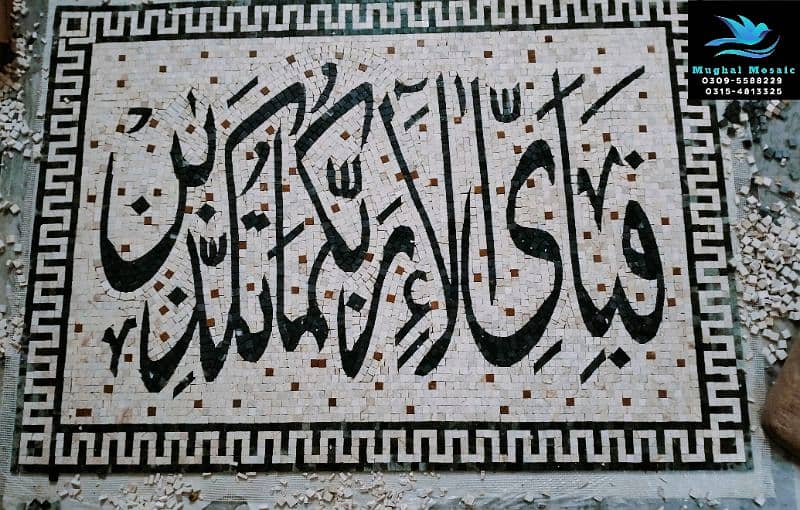 فَبِأَيِّ آلَاءِ رَبِّكُمَا تُكَذِّبَانِ
Mughal Mosaic
0309-5588229
0315-4813325